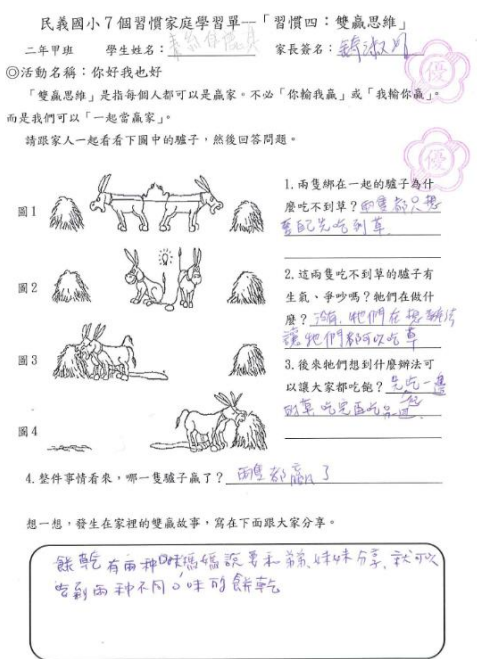 民義國小7個習慣家庭學習單--「習慣四：雙贏思維」
二年甲班 學生姓名： 家長簽名：
◎活動名稱：你好我也好
優
「雙贏思維」是指每個人都可以是贏家。不必「你輸我贏」或「我輸你贏」。
而是我們可以「一起當贏家」。
請跟家人一起看看下圖中的驢子，然後回答問題。
優
圖1
1.兩隻綁在一起的驢子為什
麼吃不到草？兩隻都只想
要自己先吃到草.
圖2
2.這兩隻吃不到草的驢子有
生氣、爭吵嗎？牠們在做什
麼？沒有,牠們在想辦法
讓牠們都可以吃草
圖3
3.後來牠們想到什麼辦法可
以讓大家都吃飽？先吃一邊
的草吃完再吃另一邊.
圖4
4.整件事情看來，哪一隻驢子贏了？兩隻都贏了
想一想，發生在家裡的雙贏故事，寫在下面跟大家分享。
餅乾有兩種口味媽媽說要和弟弟、妹妹分享,就可以
吃到兩種不同口味的餅乾